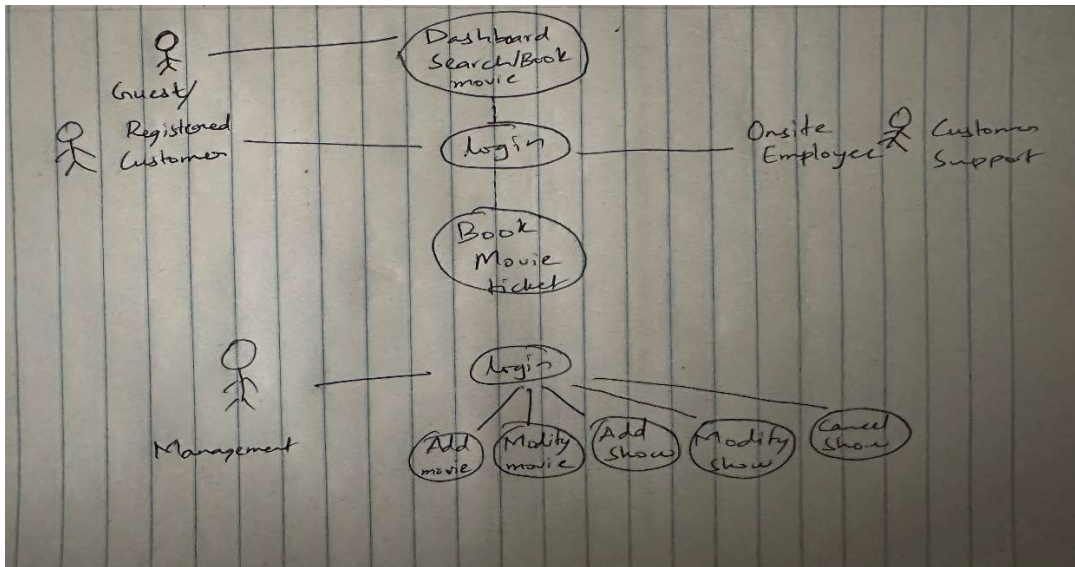 Dashboard
Search/Book
movie
Guest/
Registered
Customer
Login
Onsite
Employee
Customer
Support
Book
Movie
ticket
Login
Management
Add
movie
Modify
movie
Add
show
Modify
show
Cancel
show